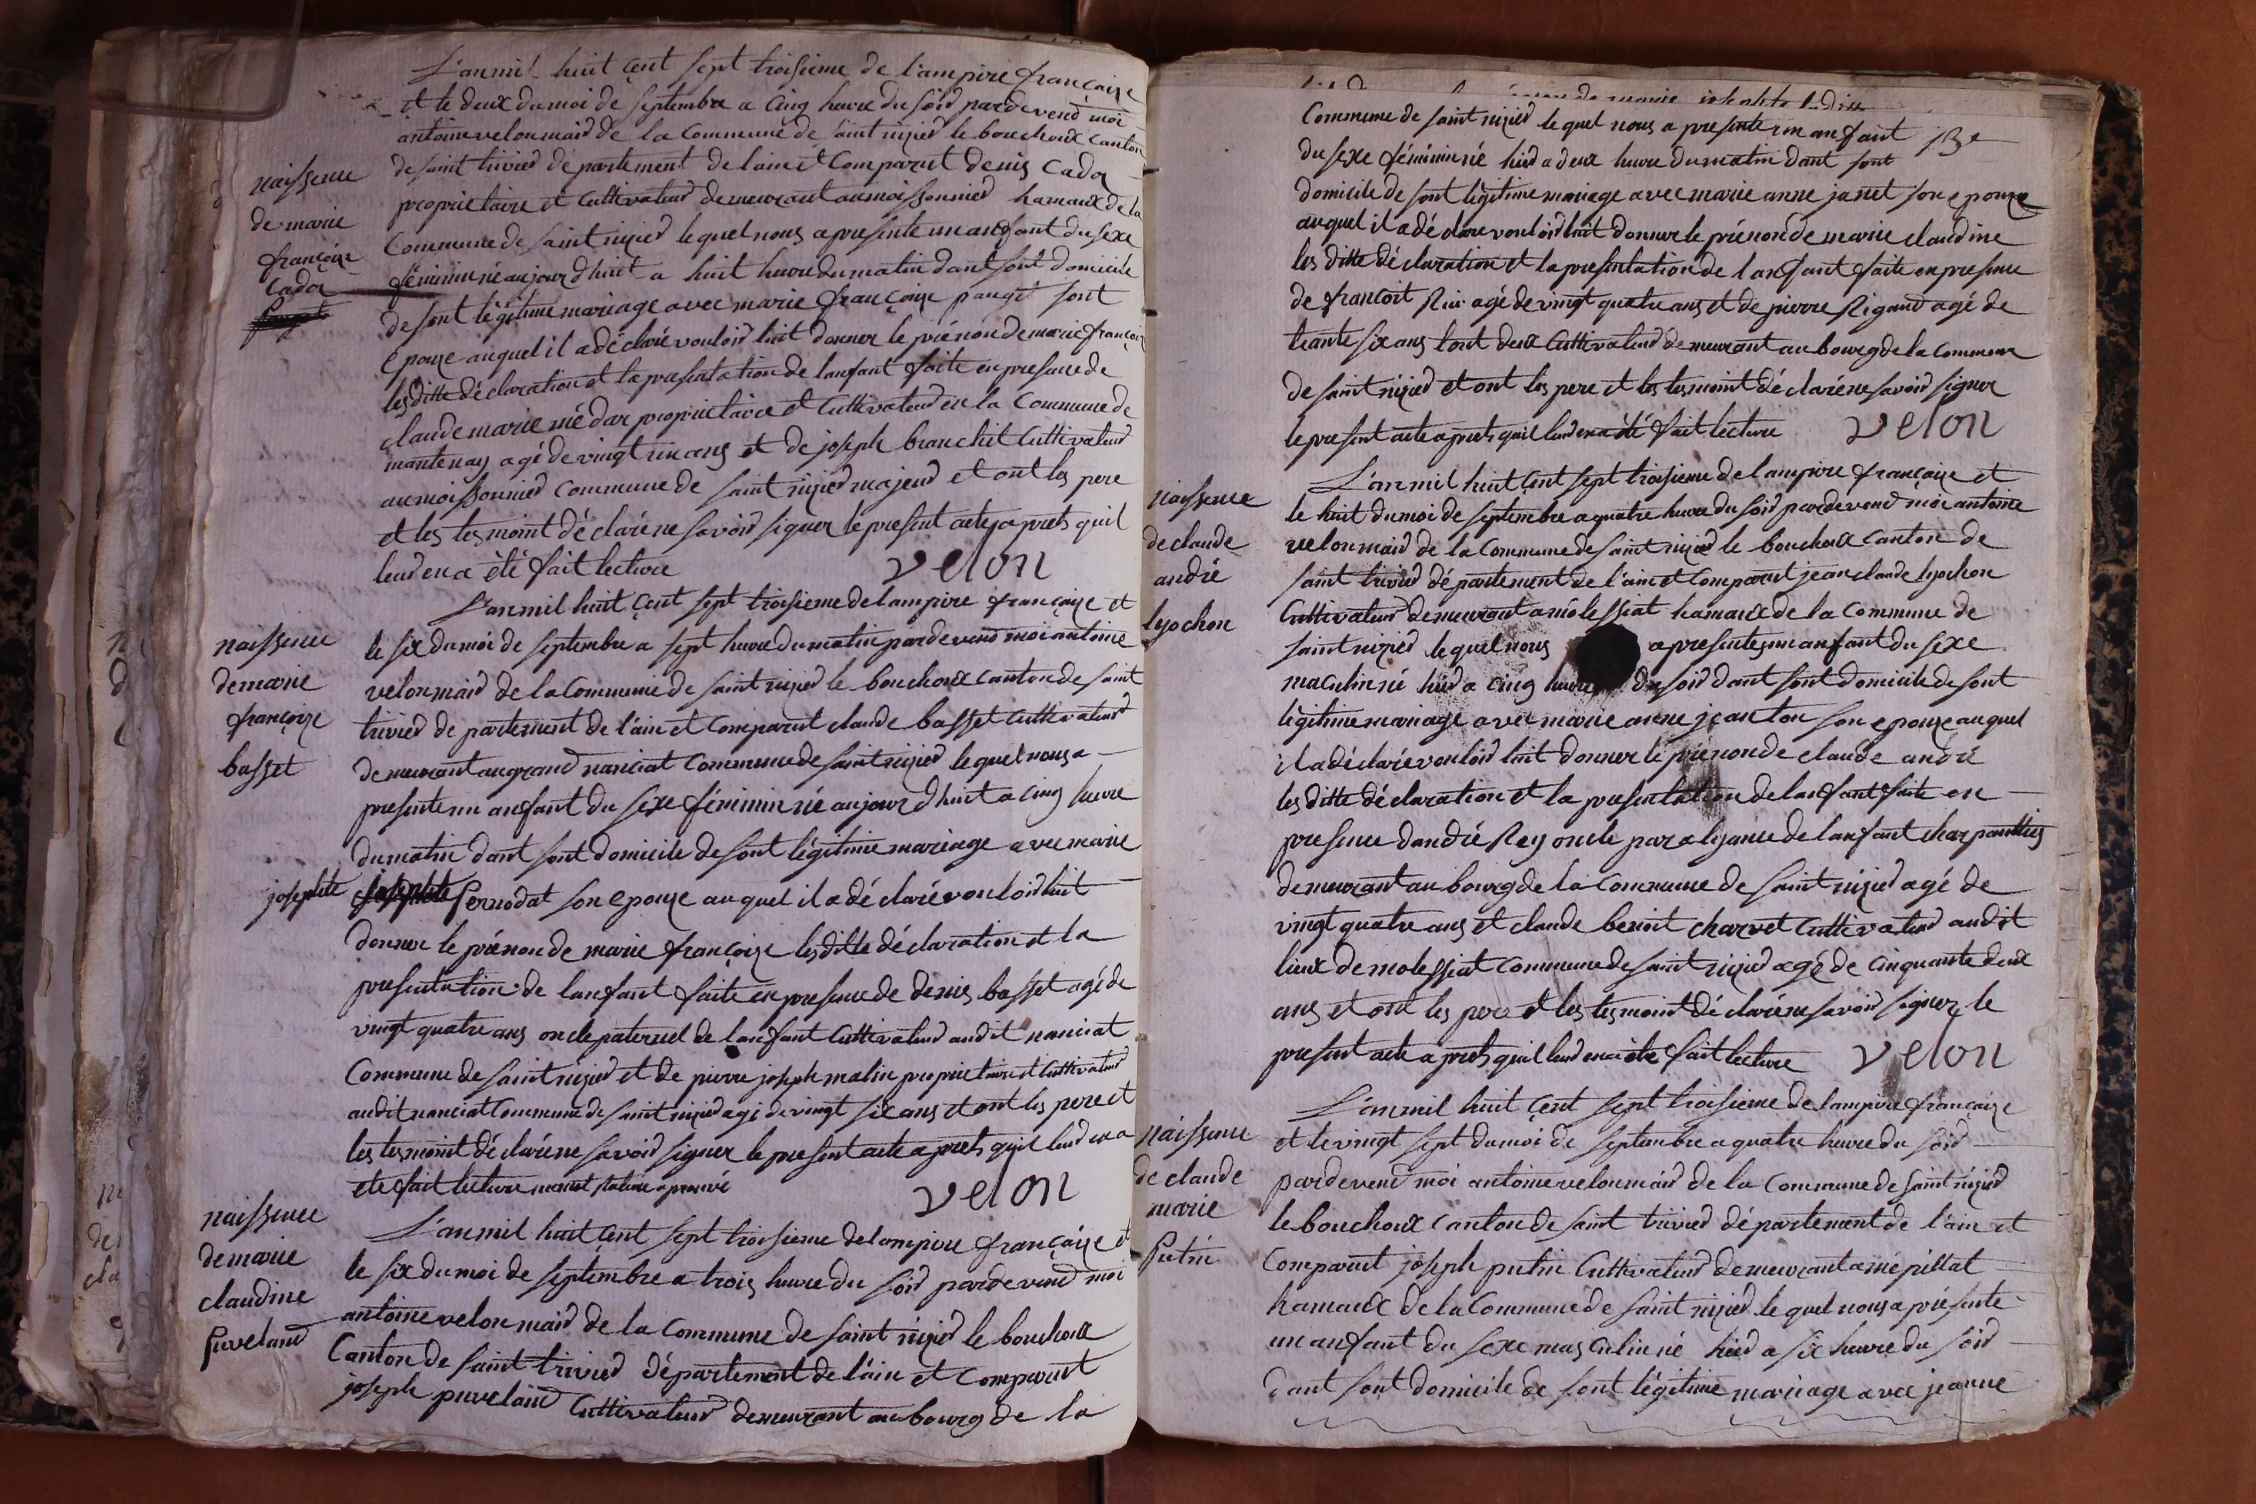 L'an mil huit çent sept troisieme de l'ampire françaize
et le deux du moi de septembre a cinq heure du soir pardevend moi
antoine velon maire de la Commune de saint nizied le bouchoux canton
naissence
de saint trivied département de l'ain et Comparut denis Cador
proprietaire et Cultivateur demeurant au moissonnied hamaux de la
de marie
Commune de saint nizied le quel nous a presente un anfant du sexe
françoize
féminin né aujourdhuit a huit heure du matin dant sont domicile
Cador
de sont légitime mariage avec marie françoize pauget sont
epouze auquel il a déclaré vouloir luit donner le prénon de marie françoize
les ditte déclaration et la presentation de lanfant faite en presence de
claude marie médar proprietaire et Cultivateur en la Commune de
mantenay agé de vingt un ans et de joseph branchit Cultivateur
au moissonnied Commune de saint nizied majeur et ont les pere
et les tesmoint déclaré ne savoir signer le present acte a prets quil
leur en a été fait lecture velon
L'an mil huit çent sept troisieme de lampire françaize et
naissence
le six du moi de septembre a sept heure du matin pardevend moi antoine
de marie
velon maire de la Commune de saint nizied le bouchoux canton de saint
françoize
trivied departement de l'ain et Comparut claude basset Cultivateur
basset
demeurant au grand nanciat Commune de saint nizied le quel nous a
presente un anfant du sexe féminin né aujourdhuit a cinq heure
du matin dant sont domicile de sont légitime mariage avec marie
josephte josephte Pernodat son epouze auquel il a déclaré vouloir luit
donner le prénon de marie françoize les ditte déclaration et la
presentation de lanfant faite en presence de denis basset agé de
vingt quatre ans oncle paternel de lanfant Cultivateur audit nanciat
Commune de saint nizied et de pierre joseph matin proprietaire et Cultivateur
audit nanciat Commune de saint nizied agé de vingt six ans et ont les pere et
les tesmoint déclaré ne savoir signer le present acte a prets quil leur en a
ete fait lecture velon
naissence
L'an mil huit çent sept troisieme de lampire françaize et
de marie
le six du moi de septembre a trois heure du soir pardevend moi
claudine
antoine velon maire de la Commune de saint nizied le bouchoux
Puveland
Canton de saint trivied département de l'ain et Comparut
joseph puveland Cultivateur demeurant au bourg de la
Commune de saint nizied le quel nous a presente un anfant
du sexe féminin né hier a deux heure du matin dant sont
domicile de sont légitime mariage avec marie anne janet son epouze
auquel il a déclaré vouloir luit donner le prénon de marie claudine
les ditte déclaration et la presentation de lanfant faite en presence
de françoit agé de vingt quatre ans et de pierre Rigaud agé de
trante six ans tout deux Cultivateur demeurant au bourg de la Commune
de saint nizied et ont les pere et les tesmoint déclaré ne savoir signer
le present acte a prets quil leur en a été fait lecture velon
L'an mil huit çent sept troisieme de lampire françaize et
naissence
le huit du moi de septembre a quatre heure du soir pardevend moi antoine
de claude
velon maire de la Commune de saint nizied le bouchoux Canton de
andré
saint trivied département de l'ain et Comparut jean claude lyochon
lyochon
Cultivateur demeurant a molessiat hamaux de la Commune de
saint nizied le quel nous a presente un anfant du sexe
maculin né hier a cinq heure du soir dant sont domicile de sont
légitime mariage avec marie anne jeanton son epouze auquel
il a déclaré vouloir luit donner le prénon de claude andré
les ditte déclaration et la presentation de lanfant faite en
presence dandré Rey oncle par alyance de lanfant charpanttier
demeurant au bourg de la Commune de saint nizied agé de
vingt quatre ans et claude benoit charvet Cultivateur audit
lieux de molessiat Commune de saint nizied agé de cinquante deux
ans et ont les pere et les tesmoint déclaré ne savoir signer le
present acte a prets quil leur en a été fait lecture velon
L'an mil huit çent sept troisieme de lampire françaize
naissence
et le vingt sept du moi de septembre a quatre heure du soir
de claude
pardevend moi antoine velon maire de la Commune de saint nizied
marie
le bouchoux Canton de saint trivied département de l'ain et
Putin
Comparut joseph putin Cultivateur demeurant a mépillat
hamaux de la Commune de saint nizied le quel nous a présente
un anfant du sexe masculin né hier a six heure du soir
dant sont domicile de sont légitime mariage avec jeanne